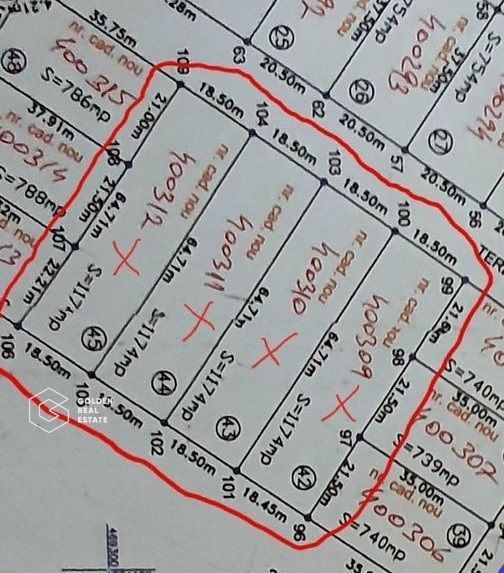 35.75m
nr. cad. nou
400315
S=786mp
37.91m
nr. cad. nou
S=788mp
109
63
25
20.50m
62
26
37.50m
S=754mp
400293
37.50m
S=754mp
27
20.50m
57
20.50m
56
21.00m
108
21.50m
107
22.21m
106
18.50m
104
18.50m
103
18.50m
100
18.50m
99
TER
nr. cad. nou
400312
64.71m
S=1174mp
45
nr. cad. nou
400311
64.71m
S=1174mp
44
nr. cad. nou
400310
64.71m
S=1174mp
43
nr. cad. nou
400309
64.71m
S=1174mp
42
18.50m
102
18.50m
101
18.45m
96
98
21.50m
97
21.50m
S=740mp
35.00m
nr. cad. nou
400307
S=739mp
35.00m
nr. cad. nou
400306
S=740mp
39
GOLDEN
REAL
ESTATE